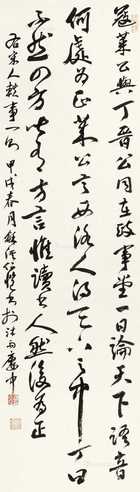 寇莱公與丁晋公同在政事堂一日論天下語音
何處為正莱公言西洛人得天下之中丁曰
不然四方皆有方言惟讀書人然後為正
右宋人軼事一則 甲戌春月 書於法雨廬中